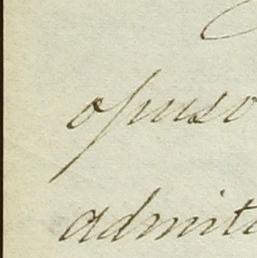 opuso
admit